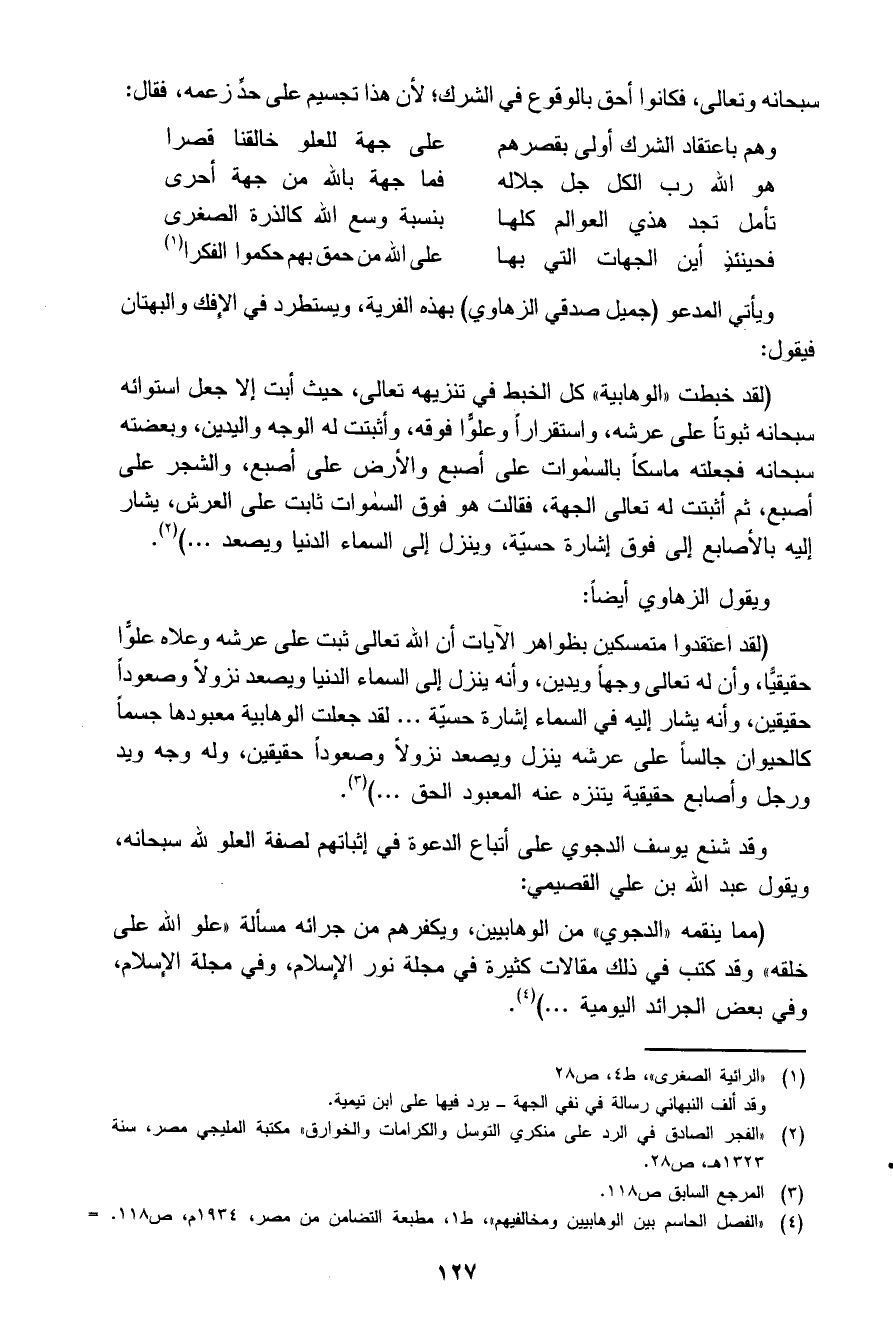 سبحانه وتعالى، فكانوا أحق بالوقوع في الشرك؛ لأن هذا تجسيم على حدِّ زعمه، فقال:
وهم باعتقاد الشرك أولى بقصرهم على جهة للعلو خالقنا قصرا
هو الله رب الكل جل جلاله فما جهة بالله من جهة أحرى
تأمل تجد هذي العوالم كلها بنسبة وسع الله كالذرة الصغرى
فحينئذٍ أين الجهات التي بها على الله من حمق بهم حكموا الفكرا(١)
ويأتي المدعو (جميل صدقي الزهاوي) بهذه الفرية، ويستطرد في الإفك والبهتان
فيقول:
(لقد خبطت «الوهابية» كل الخبط في تنزيهه تعالى، حيث أبت إلا جعل استوائه
سبحانه ثبوتاً على عرشه، واستقراراً وعلوًّا فوقه، وأثبتت له الوجه واليدين، وبعضته
سبحانه فجعلته ماسكاً بالسمٰوات على أصبع والأرض على أصبع، والشجر على
أصبع، ثم أثبتت له تعالى الجهة، فقالت هو فوق السمٰوات ثابت على العرش، يشار
إليه بالأصابع إلى فوق إشارة حسيّة، وينزل إلى السماء الدنيا ويصعد ...)(٢).
ويقول الزهاوي أيضاً:
(لقد اعتقدوا متمسكين بظواهر الآيات أن الله تعالى ثبت على عرشه وعلاه علوًّا
حقيقيًّا، وأن له تعالى وجهاً ويدين، وأنه ينزل إلى السماء الدنيا ويصعد نزولاً وصعوداً
حقيقين، وأنه يشار إليه في السماء إشارة حسيّة ... لقد جعلت الوهابية معبودها جسماً
كالحيوان جالساً على عرشه ينزل ويصعد نزولاً وصعوداً حقيقين، وله وجه ويد
ورجل وأصابع حقيقية يتنزه عنه المعبود الحق ...)(٣).
وقد شنع يوسف الدجوي على أتباع الدعوة في إثباتهم لصفة العلو لله سبحانه،
ويقول عبد الله بن علي القصيمي:
(مما ينقمه «الدجوي» من الوهابيين، ويكفرهم من جرائه مسألة «علو الله على
خلقه» وقد كتب في ذلك مقالات كثيرة في مجلة نور الإسلام، وفي مجلة الإسلام،
وفي بعض الجرائد اليومية ...)(٤).
(١) «الرائية الصغرى»، ط٤، ص٢٨
وقد ألف النبهاني رسالة في نفي الجهة - يرد فيها على ابن تيمية.
(٢) «الفجر الصادق في الرد على منكري التوسل والكرامات والخوارق» مكتبة المليجي مصر، سنة
١٣٢٣هـ، ص٢٨.
(٣) المرجع السابق ص١١٨.
(٤) «الفصل الحاسم بين الوهابيين ومخالفيهم»، ط١، مطبعة التضامن من مصر، ١٩٣٤م، ص١١٨. =
١٢٧